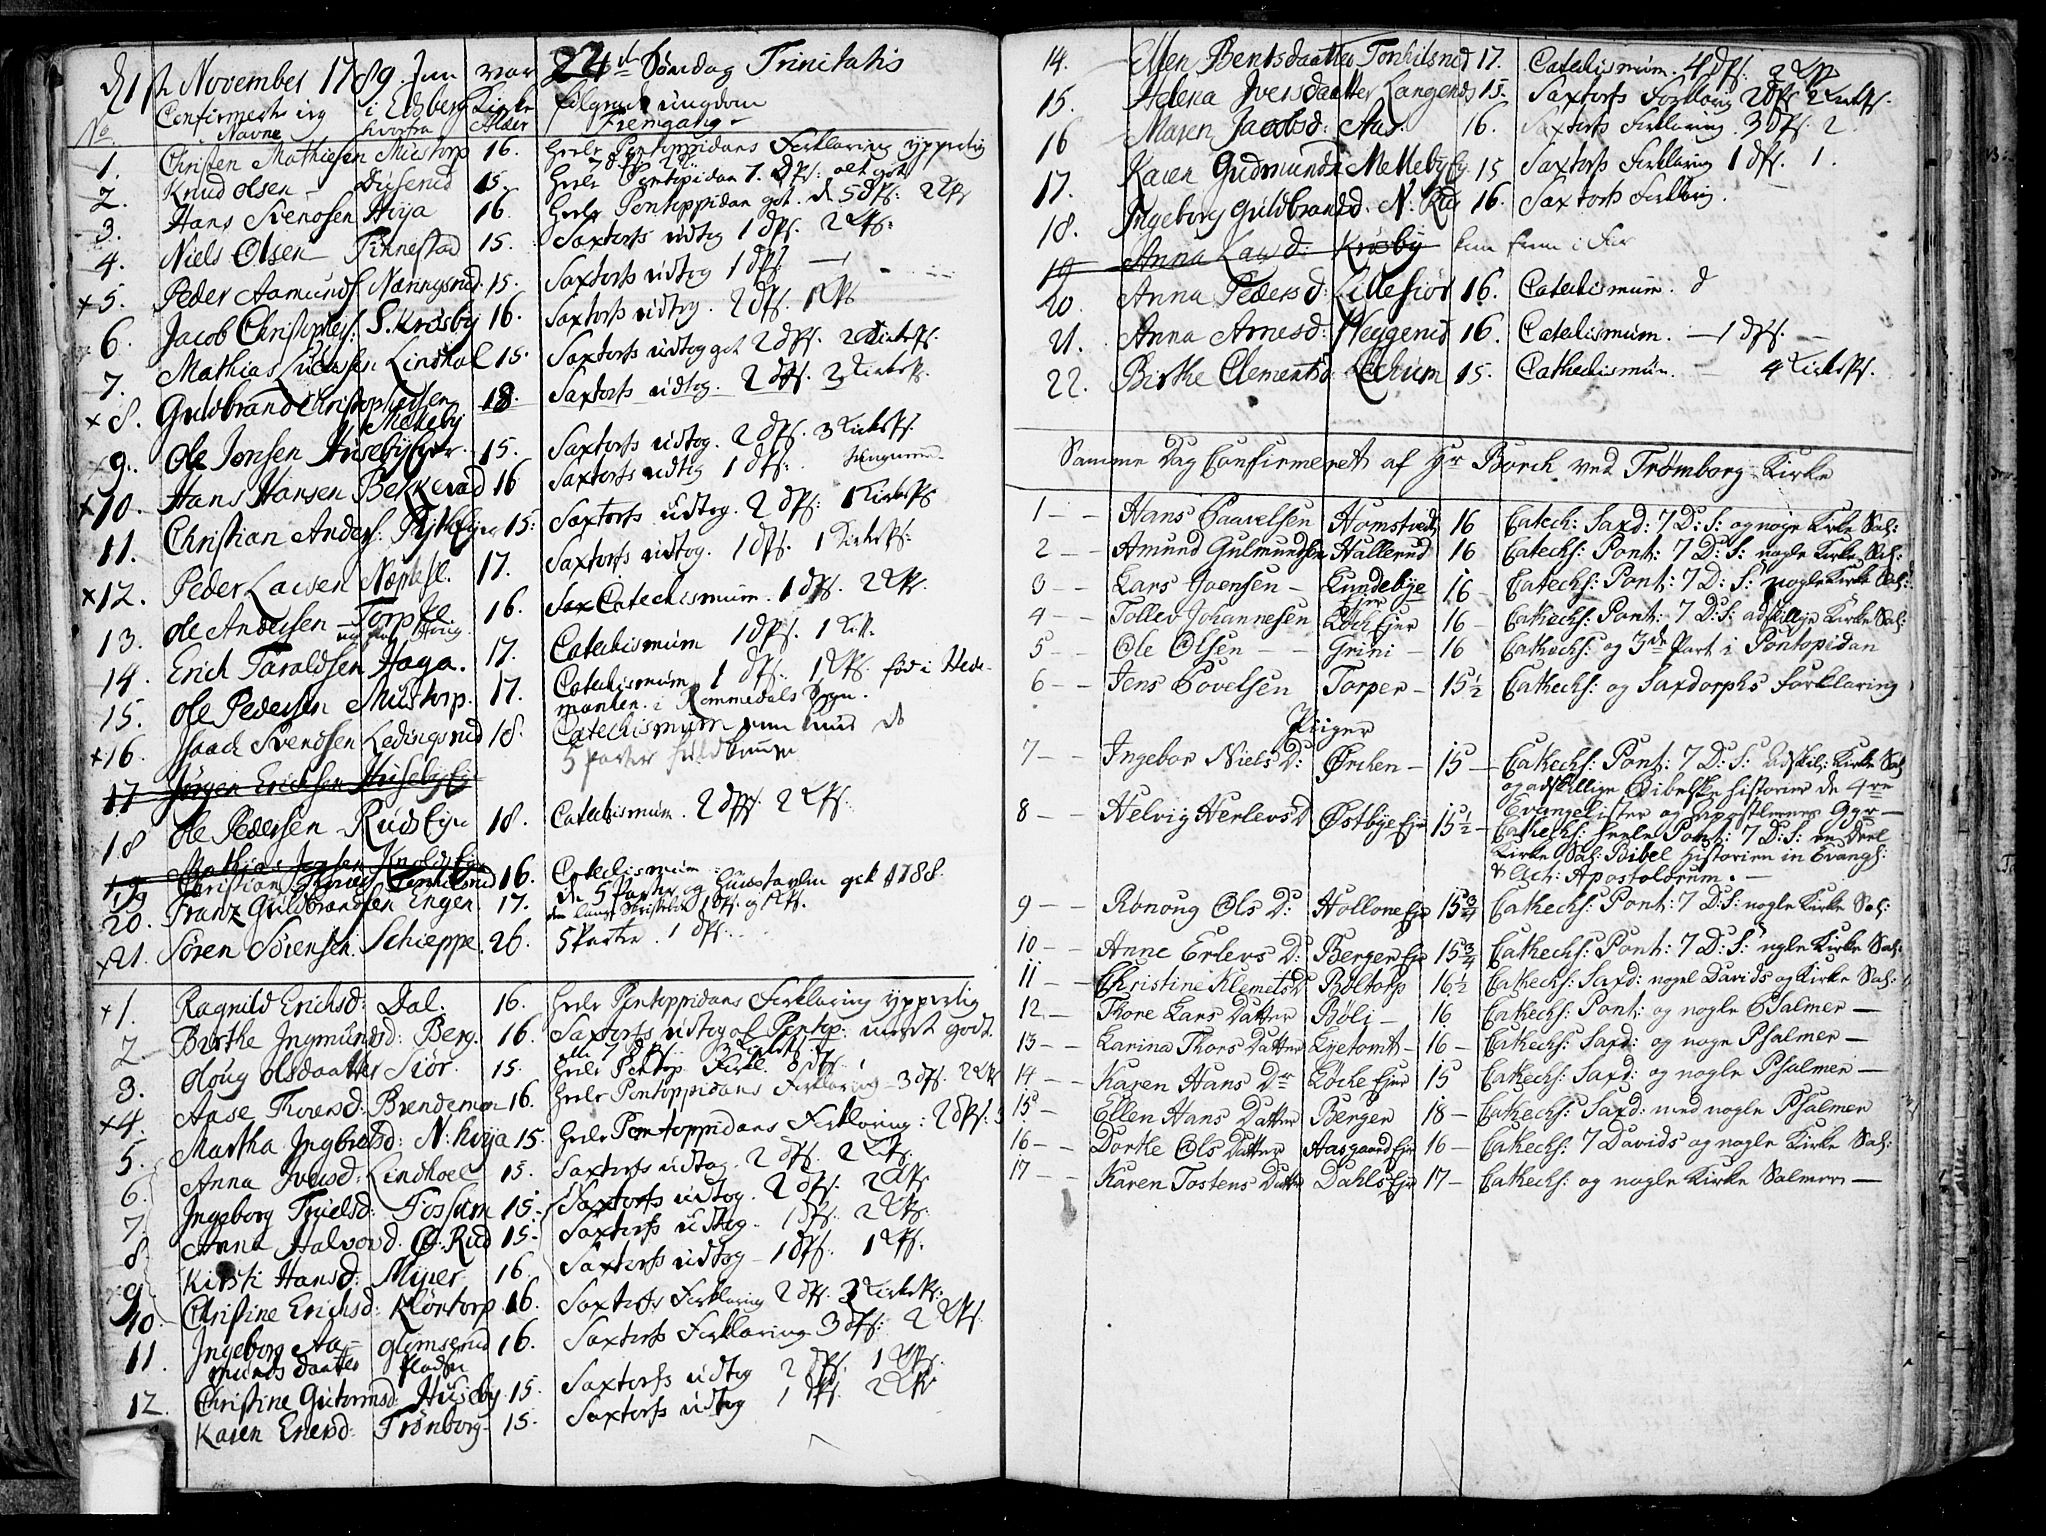 1ste November 1789. Som var 22de Søndag Trinitatis
Confirmerte ieg i Eidsberg Kirke følgende ungdom
No. Navne hvorfra Alder Fremgang
1. Christen Mathiesen Mustorp 16. Heele Pontoppidans Forklaring ypperlig
2. Knud Olsen Duserud 15. Heele Pontopidan 7. DPs: alt got
3. Hans Svendsen Hvija 16. Heele Pontoppidan got. 5 dPs: 2 KPs
4. Niels Olsen Finnestad 15. Saxtorfs udtog 1 dPs. 2 KPs:
x 5. Peder Aamunds Nænnysrud 15. Saxtorfs udtog 1 dPs
6. Jacob Christophers: S. Krosby 16. Saxtorfs udtog. 2 dPs. 1 KPs
7. Mathias Lindhol 15. Saxtorfs udtog got 2 dPs. 2 KirkePs.
x 8. Guldbrand Christophersen Melleby 18. Saxtorfs udtog. 2 dPs. 3 KirkePs.
x 9. Ole Jonsen Husebyejer 15. Saxtorfs udtog. 2 dPs. 3 KirkePs.
x 10. Hans Hansen Bekkevad 16 Saxtorfs udtog 1 dPs.
11. Christian Anders: 15: Saxtorfs udtog. 2 dPs: 1 KirkePs
x 12. Peder Larsen 17. Saxtorfs udtog. 1 dPs. 1 KirkePs:
13. Ole Andersen Torpe 16. Sax Catechismum. 1 dPs. 2 KPs.
14. Erich Taraldsen Haga. 17. Catechismum 1 dPs. 1 Kirk.
15. Ole Pedersen Mustorp. 17. Catechismum 1 dPs. 1 KPs. fød i Hedemarken i Rommedals Sogn.
x 16. Isaach Svendsen Ledingsrud 18. Catechismum
5 Parter
17 Jørgen Erichsen Husebyej
18 Ole Pedersen Ruds Ejer 18. Catechismum. 2 dPs. 2 KPs.
19 Mathias Jensen Knolds Ejer
19 Christian 16. Catechismum
20. Franz Guldbrandsen Engen 17. de 5 Parter og Huustavlen got 1788.
x 21. Søren Sørensen Schieppe. 26. 5 Parter. 1 dPs.
x 1. Ragnild Erichsd: Dal. 16. Heele Pontoppidans Forklaring ypperlig
2 Birthe Ingmundsd: Berg. 16. Saxtorfs udtog af Pontop: meget godt.
3. Oloug Olsdaatter Siør. 15. Heele Pontop. Forkl. 8 dPs.
x 4. Aase Thoresd: Brendemoen 16. Heele Pontoppidans Forklaring 3 dPs. 2 KPs
5. Martha Ingbretsd: N: Hvija 15. Heele Pontoppidans Forklaring: 2 dPs:
6. Anna Iversd: Lindhoel 15. Saxtorfs udtog. 2 dPs. 2 KPs.
7. Ingeborg Truelsd: Fossum 15. Saxtorfs udtog. 2 dPs. 2 KPs
8. Anna Halvord. Ø. Rud 15. Saxtorfs udtog. 1 dPs. 2 KPs.
9. Kirsti Hansd: Mijer 16. Saxtorfs udtog 1 dPs. 1 KPs.
10. Christine Erichsd: Kløntorp 16. Saxtorfs Forklaring 2 dPs. 3 KirkePs:
11. Ingeborg Aamunds daatter Glomsrud Pladsn 16. Saxtorfs Forklaring 3 dPs: 2 KPs.
12. Christine Gutormsd: Huseby. 15. Saxtorfs udtog 2 dPs. 1 KPs.
Karen Enersd: Trønborg 15. Saxtorfs udtog 1 dPs. 2 KPs
14. Ellen Bentsdaatter Tonhilsrud 17. Catechismum. 4 dPs: 2 KPs
15. Helena Iversdaatter Langenes 15. Saxtorfs Forklaring 2 dPs 2 KirkPs.
16 Maren Jacobsd: Aas. 16. Saxtorfs Forklaring. 3 dPs. 2
17. Karen Gudmunds Mellebyej. 15 Saxtorfs Forklaring 1 dPs. 1.
18. Ingeborg Guldbrandsd. N: Rud 16. Saxtorfs Forklaring.
19 Anna Larsd: Krosby
20. Anna Pedersd: Lillesiør 16. Catechismum.
21. Anna Arnesd: Heggerud 16. Catechismum. 1 dPs.
22. Birthe Clementsd: Lechum 15. Cathechismum. 4 KirkePs.
Samme Dag Confirmeret af Hr Borch ved Trømborg Kirke
1 — Hans Paavelsen Homstvedt 16 Catech: Saxd: 7 D: S: og nogle Kirke Sal:
2 — Amund Gulmundsen Hallerud 16 Catechs: Pont: 7 D: S: nogle Kirke Sal:
3 — Lars Joensen — Lundebye Ejer 16 — Catechs: Pont: 7 D: S: nogle Kirke Sal:
4 — Tollev Johannesen Løch Ejer 16 — Cathechs: Pont: 7 D: S: adskillige Kirke Sal:
5 — Ole Olsen — Grini — 16 Cathechs: og 3de Part i Pontopidan
6 — Jens Povelsen Torper — 15 1/2 Cathechs: og Saxdorphs Forklaring
Piiger
7 — Ingebor Niels D: Ørchen — 15 — Cathechs: Pont: 7 D: S: Adskil: Kirke Sal
og adskillige Bibelske Historier de 4re
Evangelister og Apostlernes Ggr —
8 — Helvig Herlevs D Østbye Ejer 15 1/2 — Cathechs: heele Pont: 7 D: S: en Deel
Kirke Sal: Bibel Historien in Evangl:
& Act: Apostolorum. —
9 — Rønoug Ols D: Hollone Ejer 15 3/4 Cathechs: Pont: 7 D: S: nogle Kirke Sal:
10 — Anne Erlevs D: Berger Ejer 15 3/4 Cathechs: Pont: 7 D: S: nogle Kirke Sal:
11 — Christine Klemets D Boltorp 16 1/2 Cathechs: Saxd: nogle Davids og Kirke Sal:
12 — Thore Lars Datter Bøli — 16 Cathechs: Pont: og nogle Psalmer —
13 — Karina Thors Datter Lyetomt — 16 — Cathechs: Saxd: og nogle Psalmer —
14 — Karen Hans Dr Løche Ejer 15 Cathechs: Saxd: og nogle Psalmer —
15 — Ellen Hans Datter Berger 18 — Cathechs: Saxd: med nogle Psalmer
16 — Dorthe Ols Datter Aasgaard Ejer 16 — Cathechs: 7 Davids og nogle Kirke Sal:
17 — Karen Tostens Datter Dahls Ejer 17 — Cathechs: og nogle Kirke Salmer —